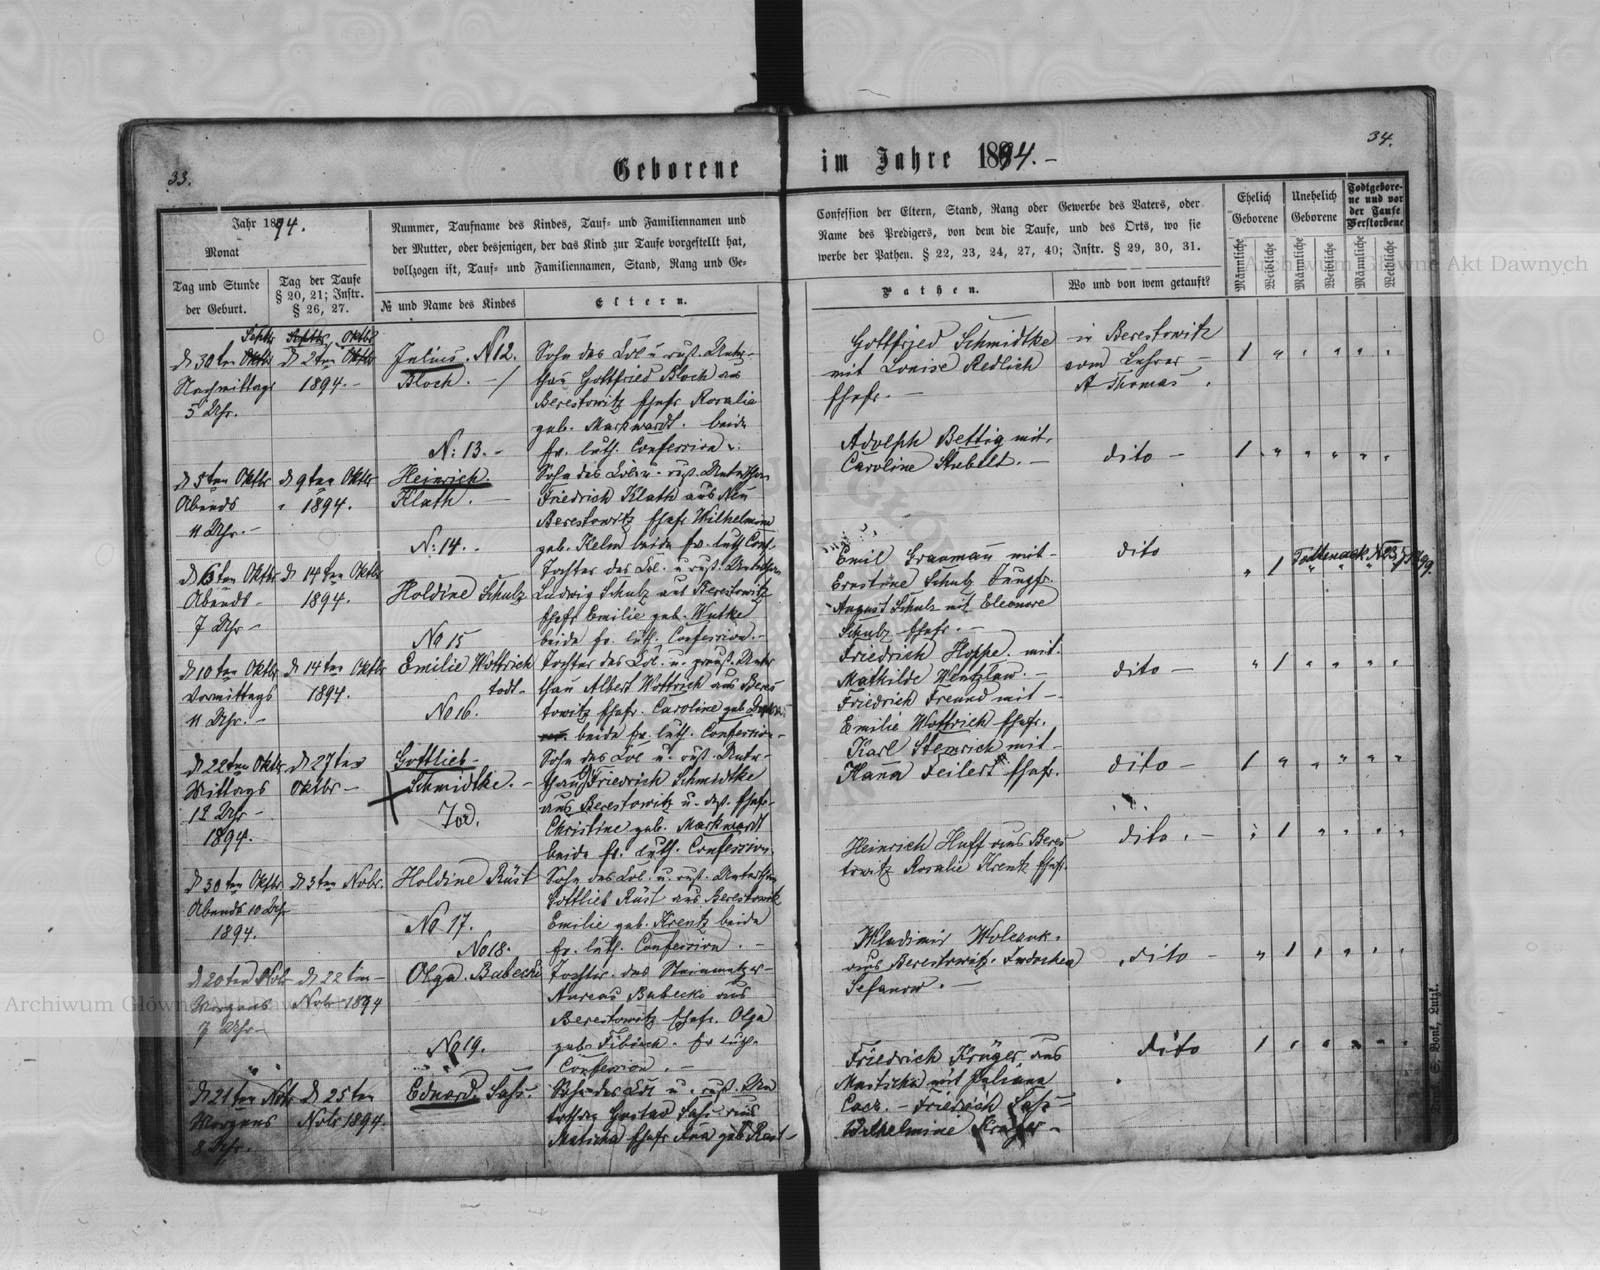 33.
34.
Geborene
im Jahre 1894.-
Jahr 1894.
Monat
Tag und Stunde
der Geburt.
Tag der Taufe
§ 20, 21; Instr.
§ 26, 27.
Nummer, Taufname des Kindes, Tauf- und Familiennamen und
der Mutter, oder desjenigen, der das Kind zur Taufe vorgestellt hat,
vollzogen ist, Tauf- und Familiennamen, Stand, Rang und Ge-
№ und Name des Kindes
Eltern.
Confession der Eltern, Stand, Rang oder Gewerbe des Vaters, oder
Name des Predigers, von dem die Taufe, und des Orts, wo sie
werbe der Pathen. § 22, 23, 24, 27, 40; Instr. § 29, 30, 31.
Pathen.
Wo und von wem getauft?
Ehelich
Geborene
Unehelich
Geborene
Todtgebore-
ne und vor
der Taufe
Verstorbene
Männliche
Weibliche
Männliche
Weibliche
Männliche
Weibliche
Septr
Septbr Oktbr
d 30ten Oktbr
Nachmittags
5 Uhr.
d 2ten Oktbr
1894.-
Julius. N 12.
Bloch. -
Sohn des Col. u. russ. Unter-
than Gottfried Bloch aus
Berestowitz Ehefr Rosalie
geb. Markwardt. beide
ev. luth. Confession.
Gottfried Schmidtke
mit Louise Redlich
Ehefr. -
in Berestowitz
vom Lehrer -
A Thomas.
N: 13.-
d 5ten Oktbr
Abends
11 Uhr.-
d 9ten Oktbr
1894.
Heinrich
Klath. -
Sohn des Col. u. russ. Unterthan
Friedrich Klath aus Neu
Berestowitz Ehefr Wilhelmine
geb. Kelm beide ev. luth Conf.
Adolph Bettig mit.
Caroline Stubelt. -
dito -
N: 14.-
d 6ten Oktbr
Abends -
7 Uhr -
d 14ten Oktbr
1894.
Holdine Schulz
Tochter des Col. u. russ. Unterthan
Ludwig Schulz aus Berestowitz
Ehefr Emilie geb. Wutke
beide ev. luth. Confession.-
Emil Graumann mit-
Ernstine Schulz Jungfr.
August Schulz mit Eleonore
Schulz Ehefr. -
dito
No 15
d 10ten Oktbr
Vormittags
11 Uhr.-
d 14ten Oktbr
1894.
Emilie Wottrich
todt-
Tochter des Col. u. preuß. Unter
than Albert Wottrich aus Beres
towitz Ehefr. Caroline geb
beide ev. luth. Confession-
Friedrich Hoppe. mit.
Mathilde Wentzlaw. -
Friedrich Freund mit -
Emilie Wottrich Ehefr.
dito -
No 16.
d 22ten Oktbr
Mittags
12 Uhr -
1894.
d 27ten
Oktbr -
Gottlieb-
Schmidtke. -
Tod.
Sohn des Col u. russ. Unter-
than Friedrich Schmidtke
aus Berestowitz u. deß. Ehefr-
Christine geb. Markwardt
beide ev. luth. Confession.
Karl Stemrich mit-
Hanna Feilert Ehefr.
dito -
d 30ten Oktbr
Abends 10 Uhr
1894.
d 3ten Nobr.
Holdine Rüst
No. 17.
Sohn des Col. u. russ. Unterthan
Gottlieb Rüst aus Berestowitz
Emilie geb. Krentz beide
ev. luth. Confession. -
Heinrich Huff aus Beres
towitz Rosalie Krentz Ehefr.
dito. -
No 18.
d 20ten Nobr
Morgens
7 Uhr-
d 22ten -
Nobr 1894
Olga. Babecki
Tochter. des Steinmetzer-
Andreas Babecki aus
Berestowitz Ehefr. Olga
geb. Fibich. ev luth.
Confession. -
Wladimir Wolczuk.
aus Berestowitz. Endochea
Sefanow. -
dito -
No 19.
d 21ten Nobr
Morgens
8 Uhr.
d 25ten
Nobr 1894.
Eduard Sass.
Sohn des Col u. russ. Un
terthan Gustav Sass aus
Matscha Ehefr Anna geb Rast-
Friedrich Krüger aus
Maitscha mit Juliana
- Friedrich Sass -
Wilhelmine Krüger -
dito
Archiwum Główne Akt Dawnych
Archiwum Główne Akt Dawnych